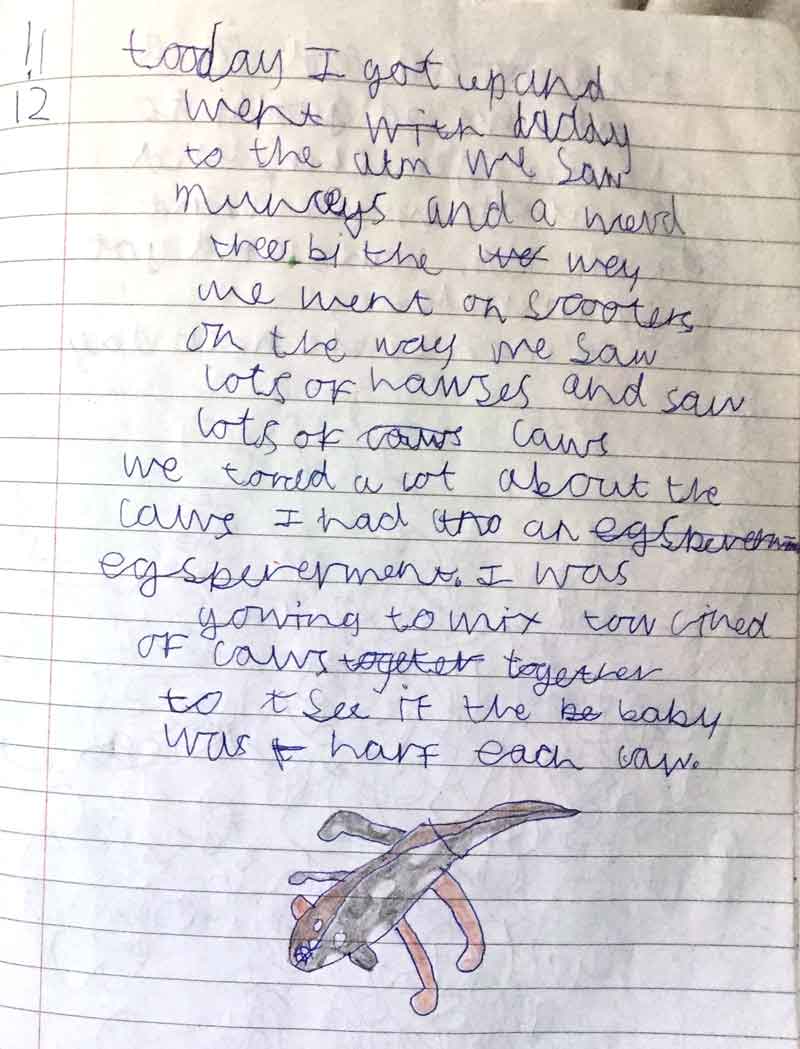 11
12
tooday I got up and
went with daday
to the atm we saw
munceys and a
thee bi the we wey
we went on scooters
on the way we saw
lots of hawses and saw
lots of caws caws
we torced a lot about the
caws I had an egsperem
egspererment. I was
gowing to mix tow cined
of caws togeter together
to t see if the be baby
was t harf each caw.